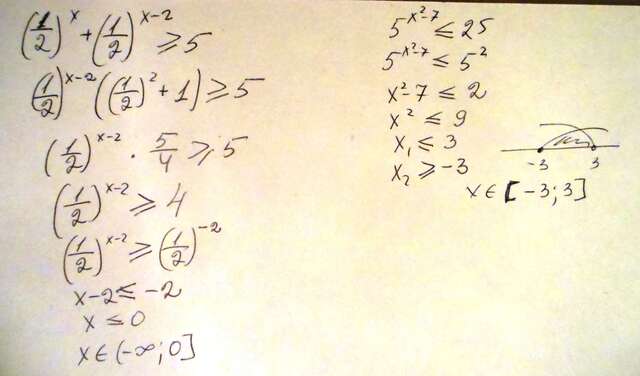 (1/2)^x + (1/2)^(x-2) ≥ 5
(1/2)^(x-2) ((1/2)^2 + 1) ≥ 5
(1/2)^(x-2) · 5/4 ≥ 5
(1/2)^(x-2) ≥ 4
(1/2)^(x-2) ≥ (1/2)^(-2)
x-2 ≤ -2
x ≤ 0
x ∈ (-∞; 0]
5^(x²-7) ≤ 25
5^(x²-7) ≤ 5²
x²-7 ≤ 2
x² ≤ 9
x₁ ≤ 3
x₂ ≥ -3
-3 3
x ∈ [-3; 3]